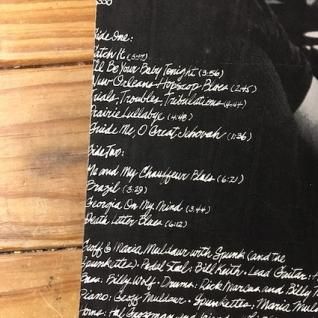 Side One:
Catch It (3:17)
I'll Be Your Baby Tonight (3:56)
New Orleans Hopscop Blues (2:45)
Trials, Troubles, Tribulations (4:44)
Prairie Lullabye (4:48)
Guide Me, O' Great Jehovah' (1:36)
Side Two:
Me and My Chauffeur Blues (6:21)
Brazil (3:29)
Georgia On My Mind (3:44)
Death Letter Blues (6:12)
Geoff & Maria Muldaur with Spunk (and the
Spunkettes). Pedal Steel: Bill Keith · Lead Guitar:
Bass: Billy Wolf · Drums: Rick Marcus and Billy
Piano: Geoff Muldaur · Spunkettes, Maria Mul
Horns: Hal Grossman and